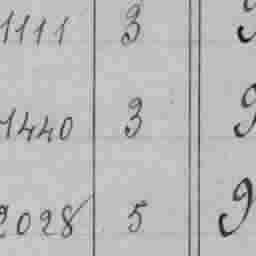 1111 3 9
1440 3 9
2028 5 9